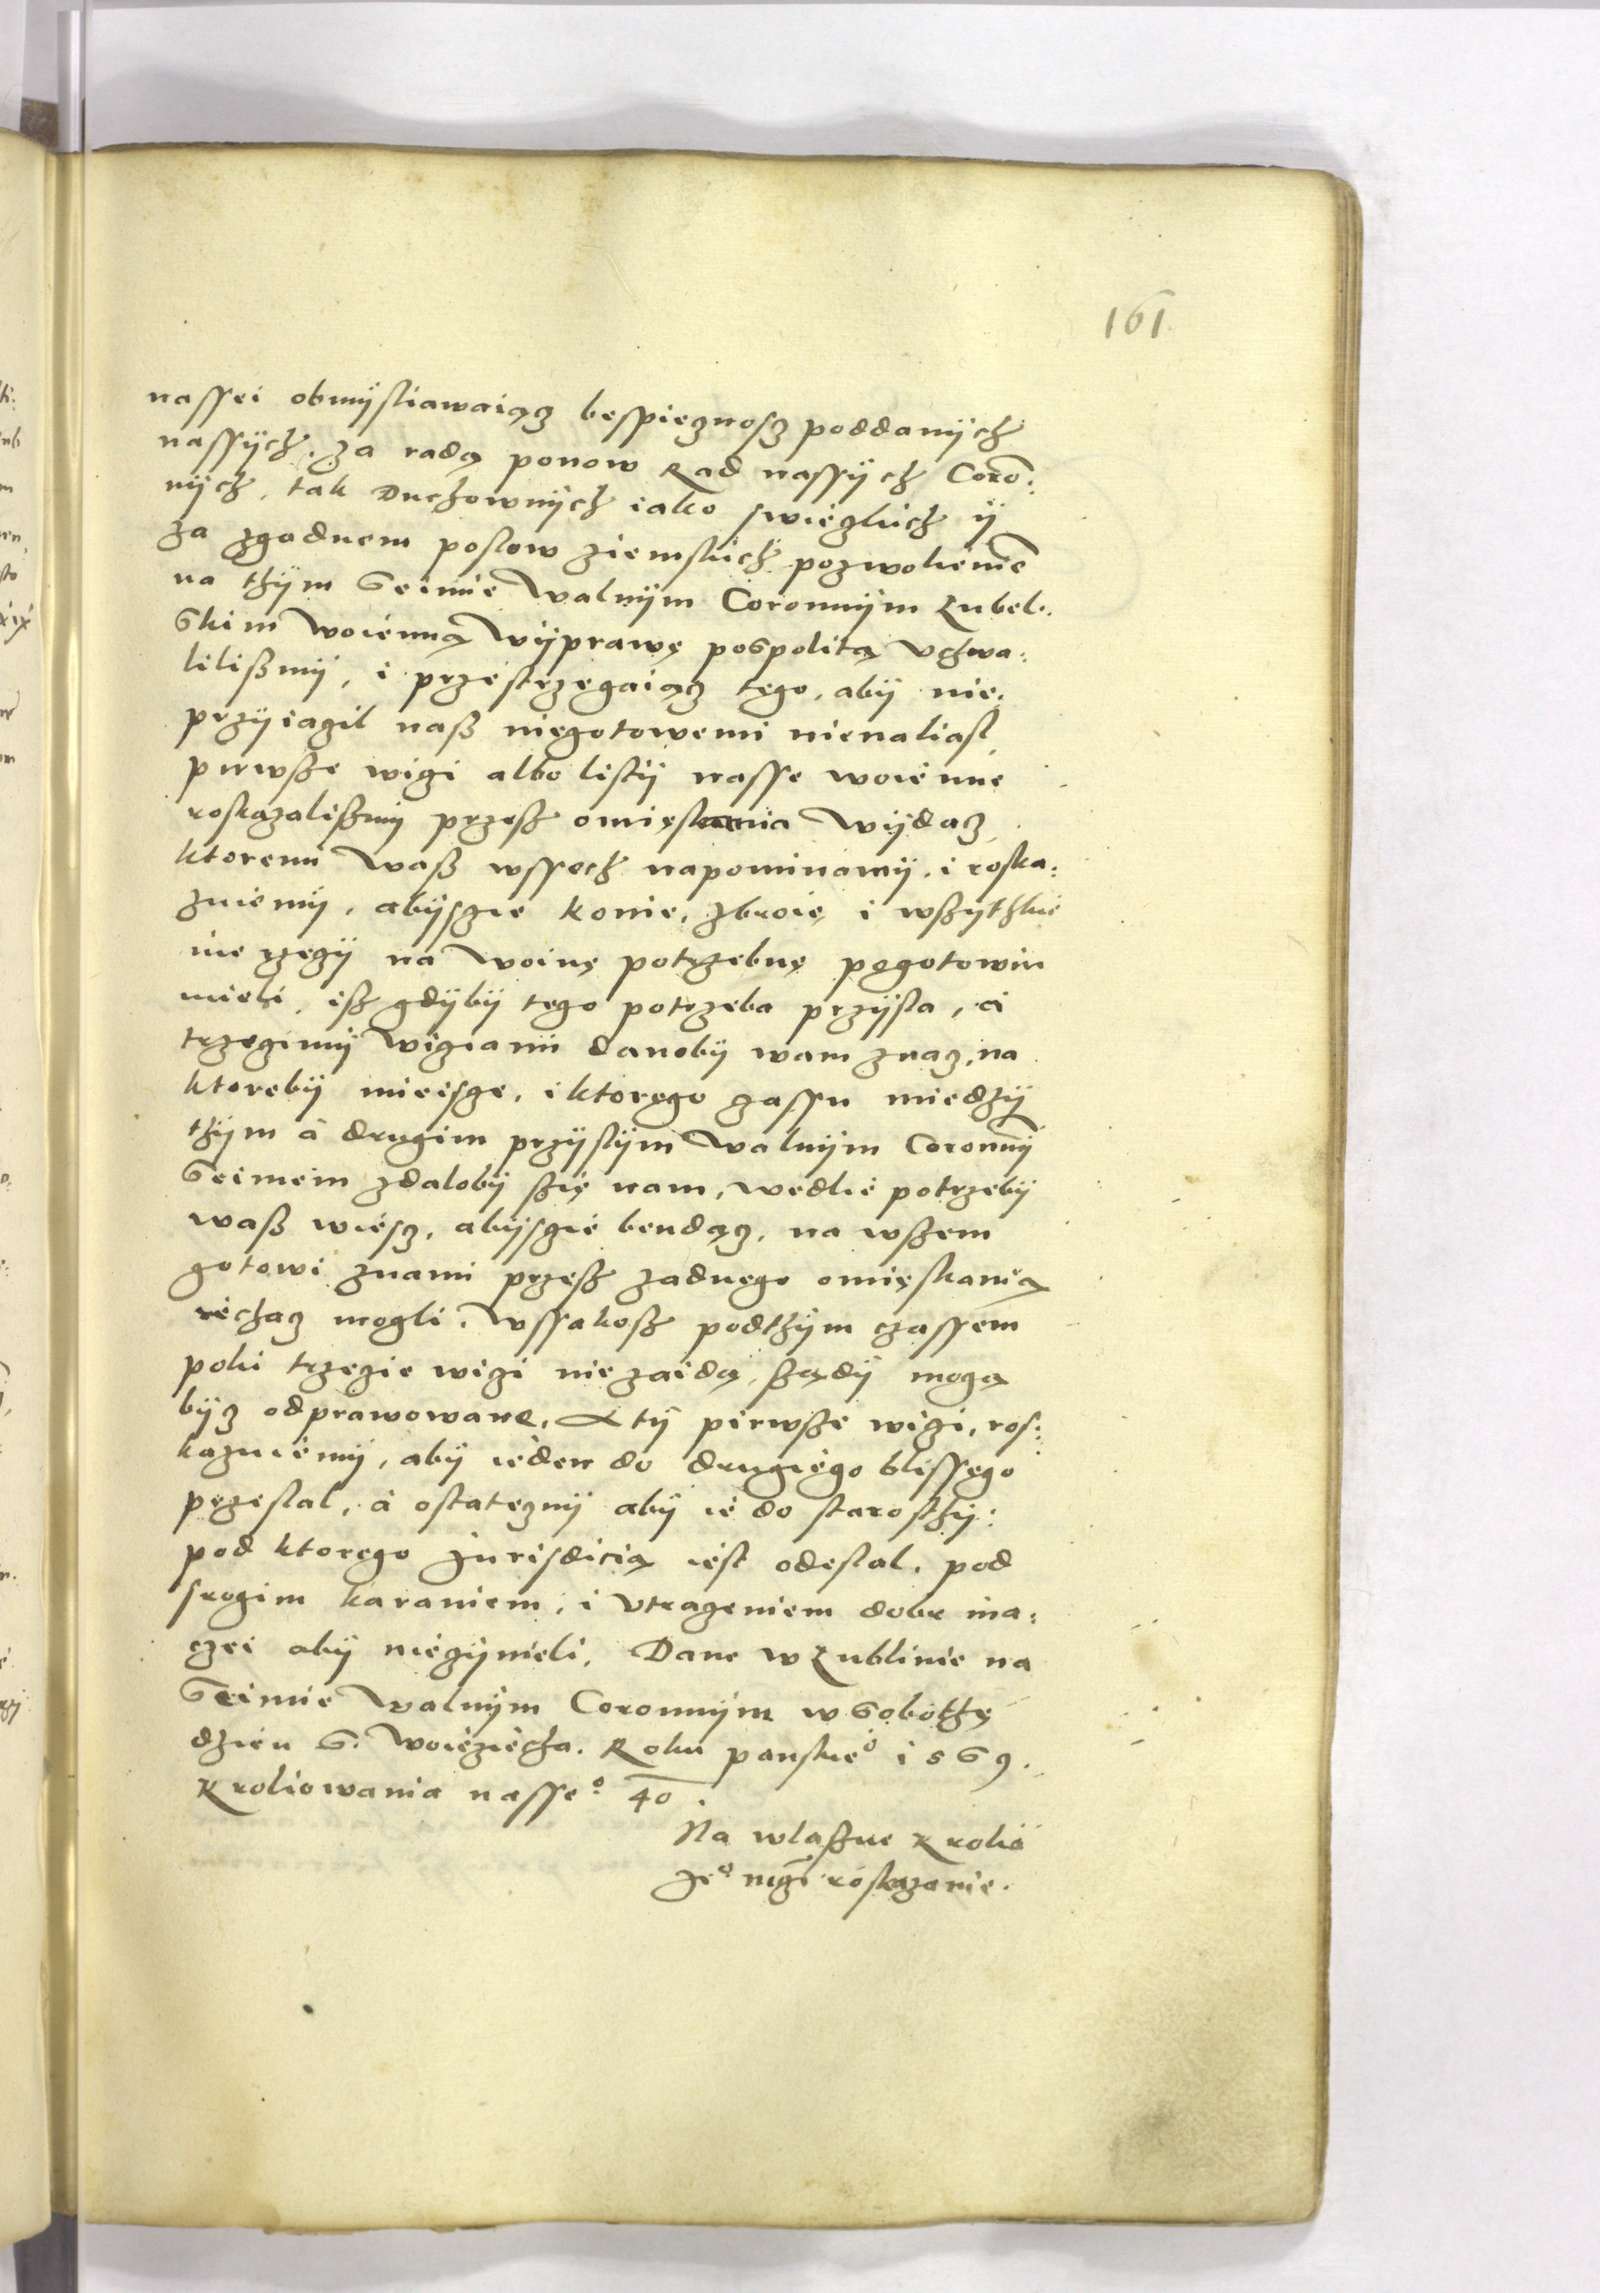 161
nassei obmysliawaiącz bespiecznosz poddanÿch
nassÿch, za radą panow Rad nassÿch Coro:
nÿch, tak Duchownÿch iako swieczkich ÿ
za zgodnem poslow ziemskich pozwolieniem
na thÿm Seimie Walnÿm Coronnÿm Lubel:
skim woienną Wÿprawę pospolitą Uchwa:
lilißmÿ, i przestrzegaiącz tego, abÿ nie:
przÿiaczil naß niegotowemi nienaliasl,
pirwsze wici albo listÿ nasse woienne
roskazalißmÿ przesz omięskania Wÿdacz,
ktoremi Waß wssech napominamÿ, i roska:
zuiemÿ, abÿscie konie, zbroię i wszythkie
ine rzeczÿ na Woinę potrzebnę pogotowiu
mieli, isz gdÿbÿ tego potrzeba przÿsla, a
trzecimÿ Wiciami danobÿ wam znacz, na
ktorebÿ mieisce, i ktorego czassu miedzÿ
thÿm á drugim przÿslÿm Walnÿm Coronnÿ
Seimem zdalobÿ szię nam, wedlie potrzebÿ
waß wiescz, abÿscie bendącz, na wszem
gotowi znami przesz zadnego omięskania
iechacz mogli. Wssakosz podthÿm czassem
poki trzecie wici nie zaidą, sządÿ mogą
bÿcz odprawowane. A tÿ pierwsze wici, ros:
kazuiemÿ, abÿ ieden do drugiego blissego
przeslal, á ostatecznÿ abÿ ie do starosthÿ:
pod ktorego Jurisdicią iest odeslal, pod
srogim karaniem, i Utraceniem dobr ina:
czei abÿ nieczÿnieli. Dane w Lublinie na
Seimie Walnÿm Coronnÿm w Sobothę
dzien S. Woiciecha. Roku panskie° 1569.
Kroliowania nasse° 40.
Na wlaszne Krolia
Je° mczi roskazanie.